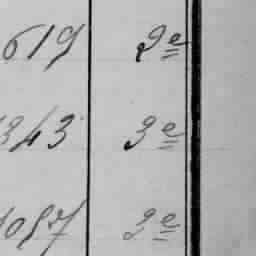 619 2e
343 3e
1087 2e